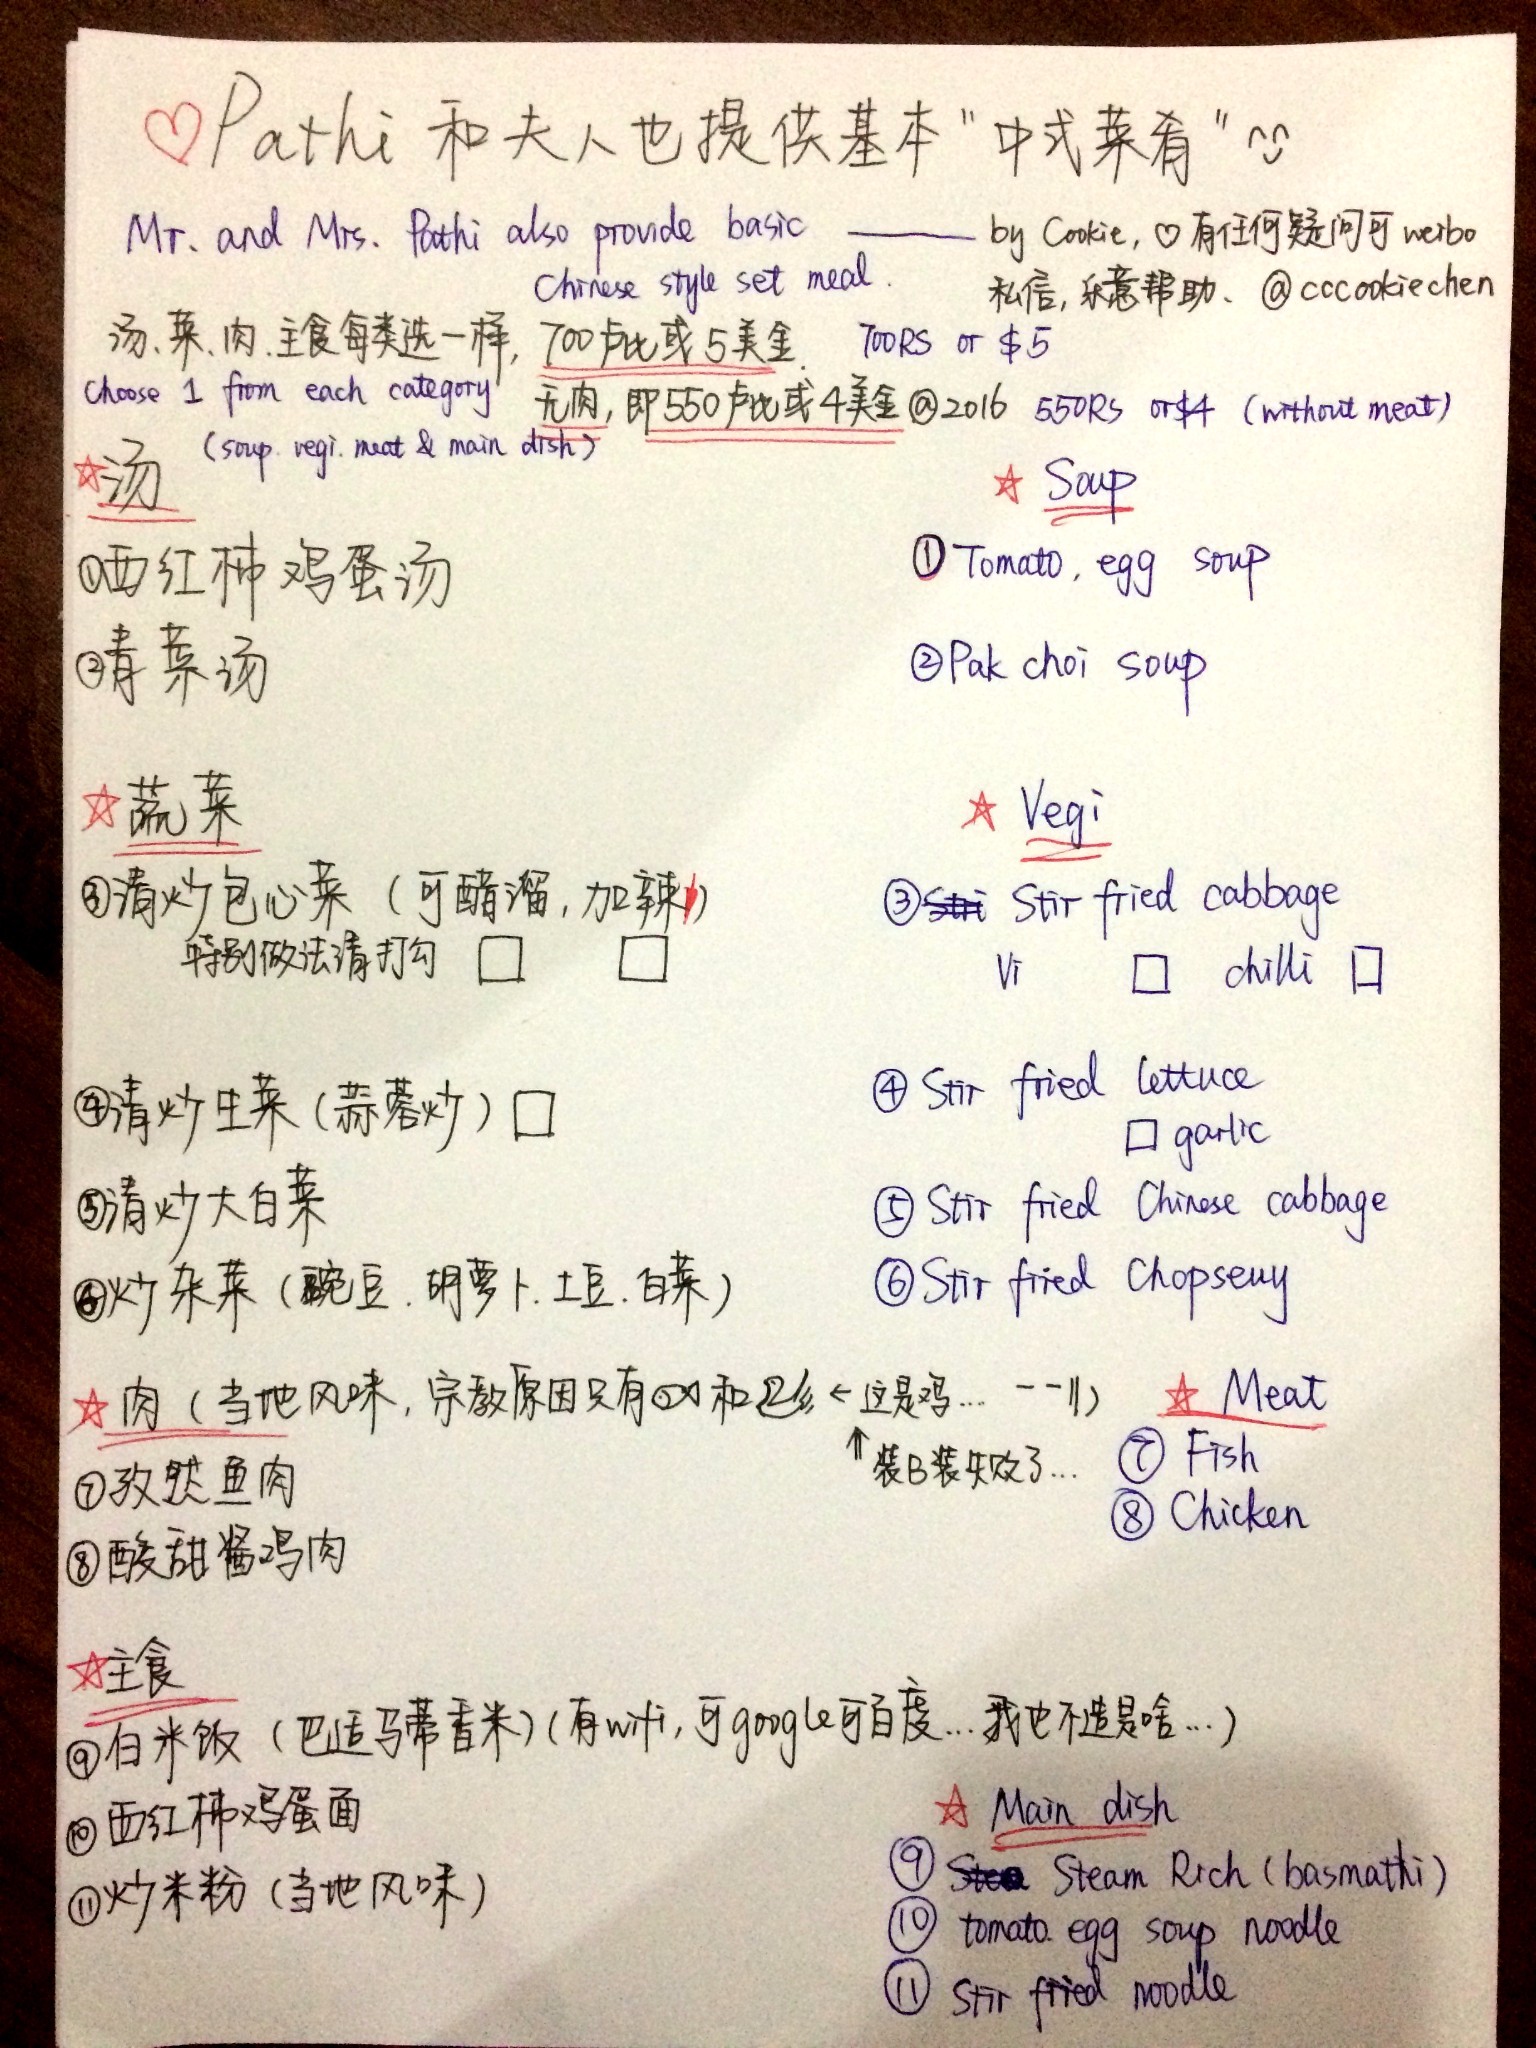 Pathi 和夫人也提供基本"中式菜肴"
Mr. and Mrs. Pathi also provide basic
Chinese style set meal.
by Cookie, ♡有任何疑问可weibo
私信,乐意帮助、@cccookiechen
汤、菜、肉、主食每类选一样, 700卢比或5美金. 700RS or $5
Choose 1 from each category
无肉,即550卢比或4美金@2016 550RS or $4 (without meat)
(soup. vegi. meat & main dish)
☆汤
☆ Soup
①西红柿鸡蛋汤
① Tomato, egg soup
②青菜汤
②Pak choi soup
☆蔬菜
☆ Vegi
③清炒包心菜 (可醋溜,加辣)
③ Stir fried cabbage
特别做法请打勾 □ □
Vi □ chilli □
④清炒生菜(蒜蓉炒) □
④ Stir fried lettuce
□ garlic
⑤清炒大白菜
⑤ Stir fried Chinese cabbage
⑥炒杂菜(豌豆.胡萝卜.土豆.白菜)
⑥ Stir fried Chopseuy
☆肉(当地风味,宗教原因只有 和 ←这是鸡... --||)
↑装B装失败了...
☆ Meat
⑦孜然鱼肉
⑦ Fish
⑧酸甜酱鸡肉
⑧ Chicken
☆主食
⑨白米饭(巴适马蒂香米)(有wifi,可google可百度...我也不造是啥...)
⑩西红柿鸡蛋面
⑪炒米粉(当地风味)
☆ Main dish
⑨ Steam Rich (basmathi)
⑩ tomato. egg soup noodle
⑪ Stir fried noodle